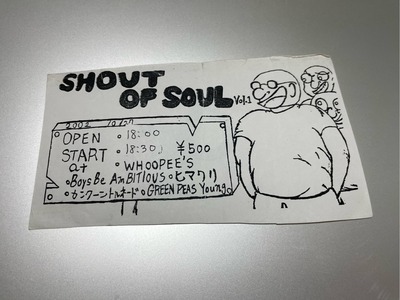 SHOUT
OF SOUL Vol.1
OPEN • 18:00
START • 18:30 ¥500
at • WHOOPEE'S
• Boys Be AmBITIOUS • ヒマワリ
• GREEN PEAS Young